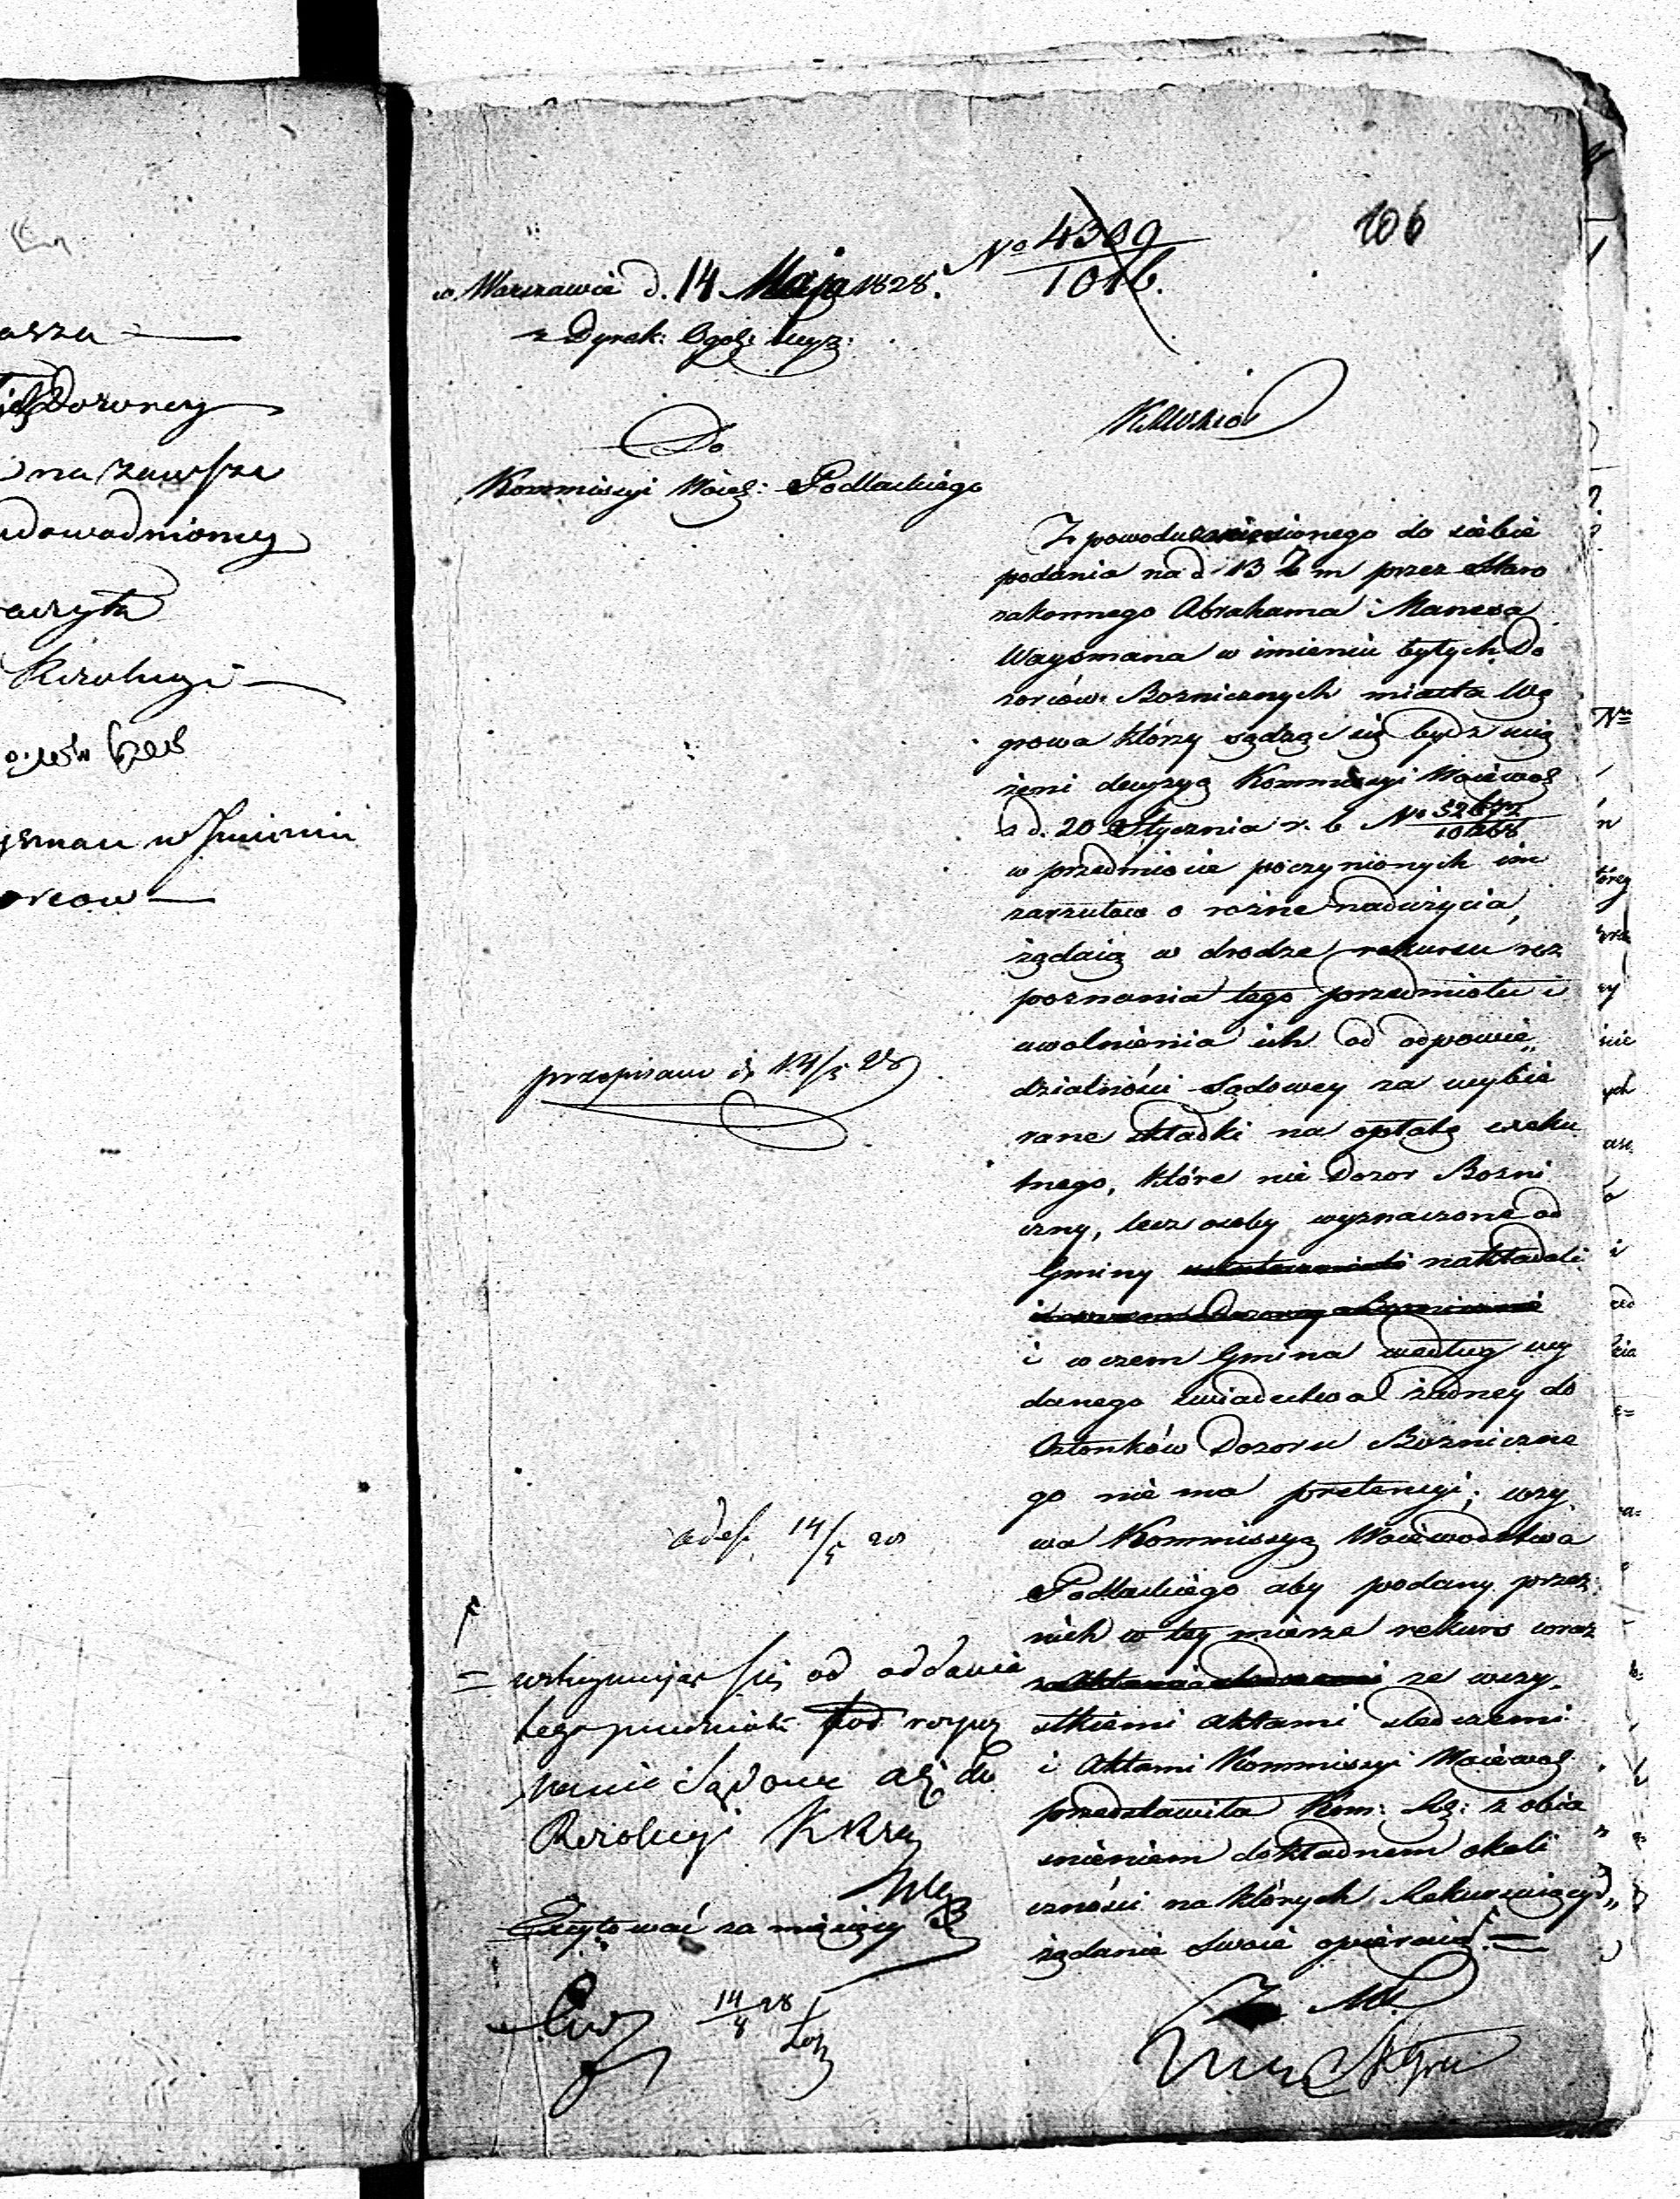 asza
Dozorcy
na zawsze
udowodniony
Rezolucyi
w Imieniu
106
No 4309
1016.
w Warszawie d. 14 Maja 1828.
z Dyrek: Ogol: Wyz:
Do
Kommissyi Woiew: Podlaskiego
Z powodu zaniesionego do siebie
podania na d 13 b m przez Staro
zakonnego Abrahama Manesa
Waysmana w imieniu byłych Do
zorców Boznicznych miasta Wę
growa którzy sądząc się bydź ucią
żeni decyzyą Kommissyi Woiewod
z d. 20 Stycznia r. b No
w przedmiocie poczynionych im
zarzutow o rozne naduzycia,
żądaią w drodze rekursu roz
poznania tego przedmiotu i
uwolnienia ich od odpowie„
dzialności Sądowey za wybie
rane składki na opłatę rekru
tnego, które nie Dozor Bozni
czny, lecz osoby wyznaczone od
Gminy nakładali
i w czem Gmina według wy
danego swiadectwa żadney do
Członków Dozoru Bozniczne
go nie ma pretensyi; wzy
wa Kommissyą Woiewodztwa
Podlaskiego aby podany przez
nich w tey mierze rekurs wraz
ze wszy„
stkiemi aktami sledczemi
i Aktami Kommissyi Woiewod
przedstawiła Kom: Rz: z obia
snieniem dokładnem okoli
czności na których Rekursuiący
żądanie swoie opieraią =
przepisano d. 14/5 28
14/5 28
= wstrzymując się od oddania
tego przedmiotu pod rozpoz
nanie Sądowe aż do
Rezolucyi K Rzą
Excytować za miesięcy
14/8 28